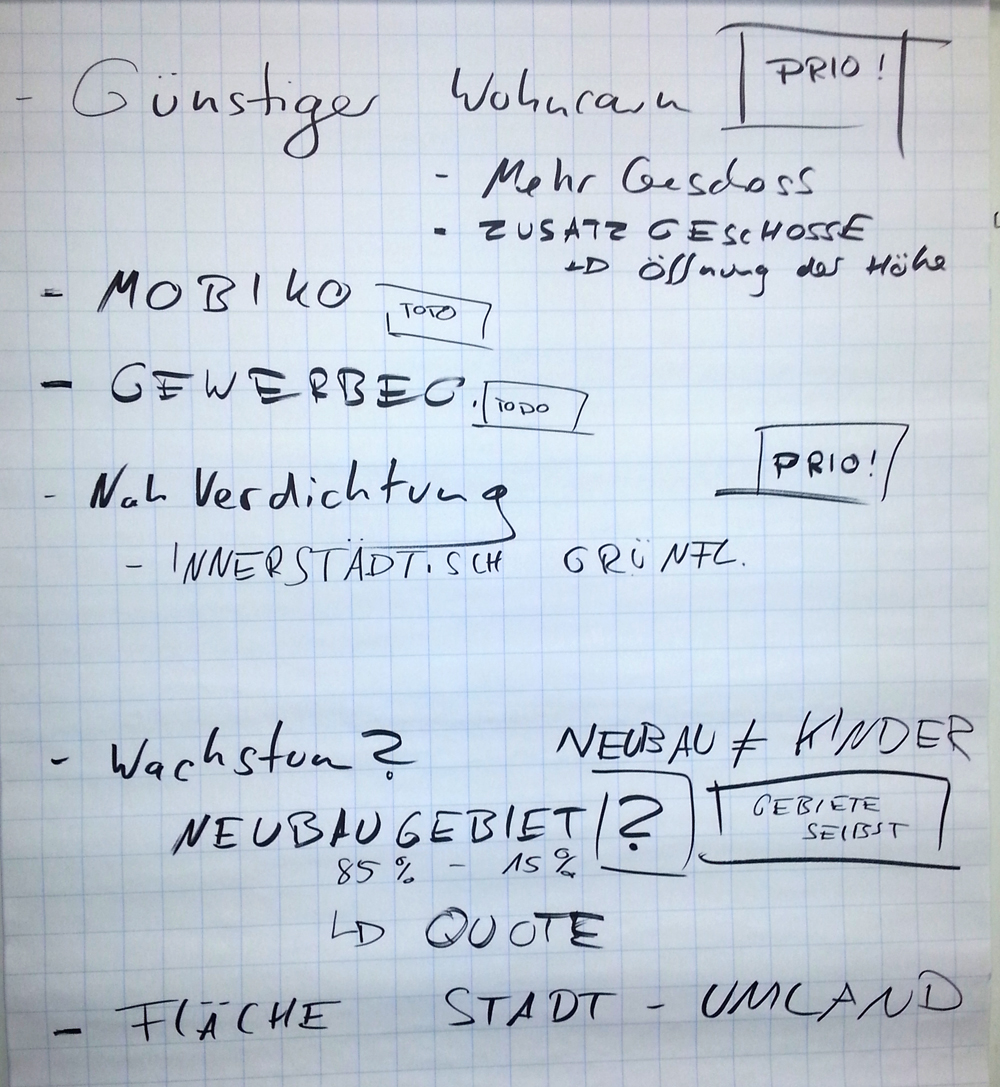 - Günstiger Wohnraum PRIO!
- Mehr Geschoss
- ZUSATZ GESCHOSSE
↳ Öffnung der Höhe
- MOBIKO TODO
- GEWERBEG. TODO
- Nah Verdichtung PRIO!
- INNERSTÄDTISCH GRÜNFL.
- Wachstum? NEUBAU ≠ KINDER
NEUBAUGEBIET ? GEBIETE
SELBST
85% - 15%
↳ QUOTE
- FLÄCHE STADT - UMLAND